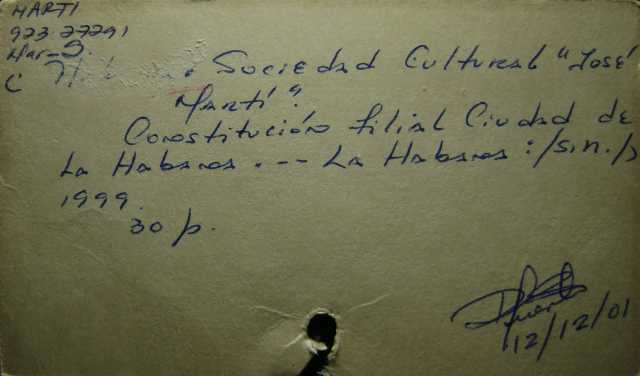 MARTI
923.27291
Mar-S.
C
Sociedad Cultural "José
Martí".
Constitución filial Ciudad de
La Habana. -- La Habana :/s.n./,
1999.
30 p.
12/12/01